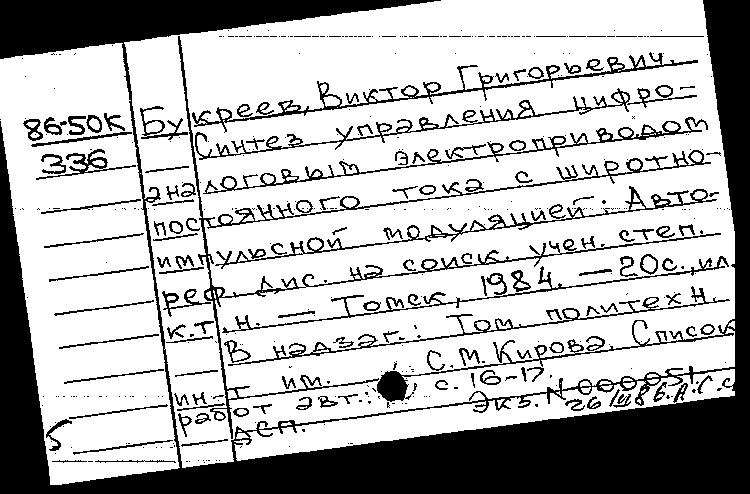 86-50К
336
Букреев, Виктор Григорьевич.
Синтез управления цифро-
аналоговым электроприводом
постоянного тока с широтно-
импульсной модуляцией: Авто-
реф. дис. на соиск. учен. степ.
к.т.н. — Томск, 1984. — 20с., ил.
В надзаг.: Том. политехн.
ин-т им. С.М.Кирова. Список
работ авт.: с. 16-17.
Экз. N 000051
ДСП.
5